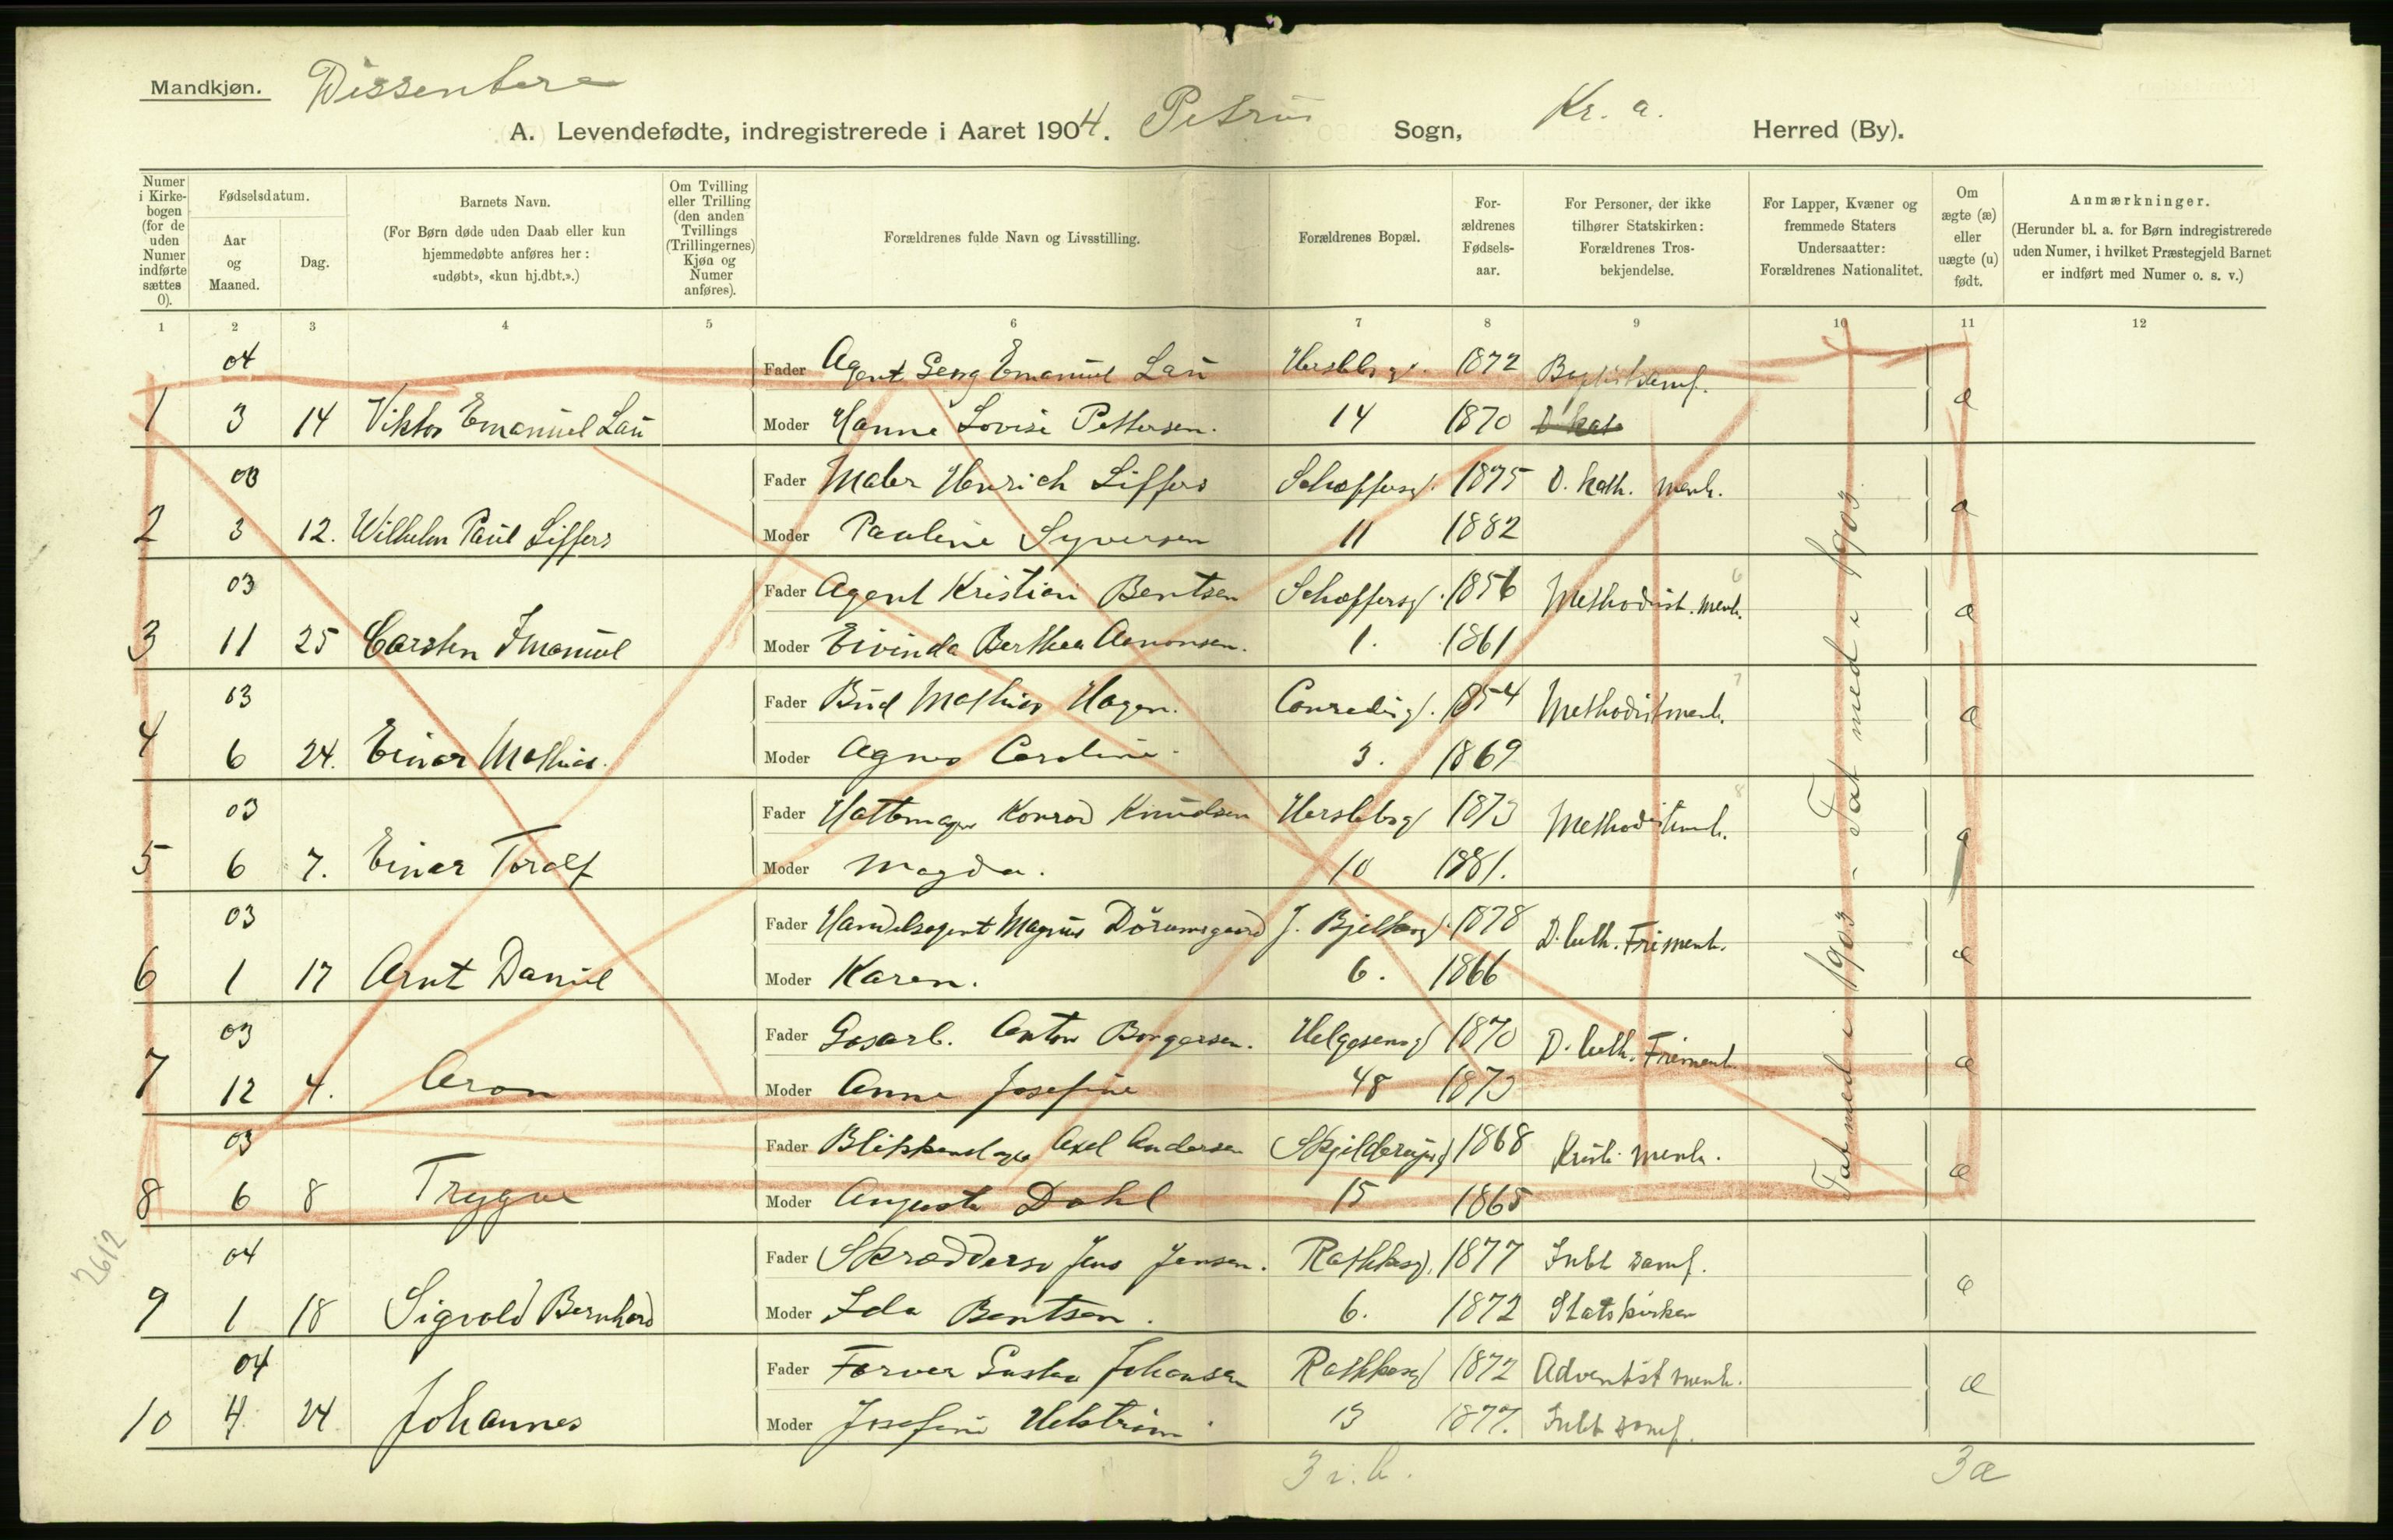 Mandkjøn. Dissentere
A. Levendefødte, indregistrerede i Aaret 1904. Petrus Sogn, Kr. a. Herred (By).
Numer i Kirke-bogen (for de uden Numer indførte sættes 0).
Fødselsdatum.
Aar og Maaned.
Dag.
Barnets Navn.
(For Børn døde uden Daab eller kun hjemmedøbte anføres her: «udøbt», «kun hj.dbt.».)
Om Tvilling eller Trilling (den anden Tvillings (Trillingernes) Kjøn og Numer anføres).
Forældrenes fulde Navn og Livsstilling.
Forældrenes Bopæl.
For-ældrenes Fødsels-aar.
For Personer, der ikke tilhører Statskirken: Forældrenes Tros-bekjendelse.
For Lapper, Kvæner og fremmede Staters Undersaatter: Forældrenes Nationalitet.
Om ægte (æ) eller uægte (u) født.
Anmærkninger.
(Herunder bl. a. for Børn indregistrerede uden Numer, i hvilket Præstegjeld Barnet er indført med Numer o. s. v.)
1 2 3 4 5 6 7 8 9 10 11 12
04 Fader Agent Georg Emanuel Lau Herslebsg. 1872 Baptistsamf.
1 3 14 Viktor Emanuel Lau Moder Hanne Lovise Pettersen. 14 1870 æ
03 Fader Maler Henrich Siffers Schæffersg. 1875 D. kath. menh.
2 3 12. Wilhelm Paul Siffers Moder Pauline Syversen 11 1882 æ
03 Fader Agent Kristian Bentsen Schæffersg. 1856 Methodist. menh. 6
3 11 25 Carsten Imanuel Moder Eivinda Berthea Aanonsen. 1. 1861 æ
03 Fader Bud Mathias Hagen. Conradisg. 1854 Methodistmenh. 7
4 6 24. Einar Mathias. Moder Agnes Caroline 3. 1869 æ
03 Fader Hattemager Konrad Knudsen Herslebsg 1873 Methodistmenh. 8
5 6 7. Einar Toralf Moder Magda. 10 1881. æ
03 Fader Handelsagent Magnus Dörumsgaard J. Bjelkesg. 1878 D. luth. Frimenh.
6 1 17 Arnt Daniel Moder Karen. 6. 1866 æ
03 Fader Gasarb. Anton Borgersen. Helgesensg 1870 D. luth. Frimenh.
7 12 4. Aron Moder Anna Josefine 48 1873 æ
03 Fader Blikkenslager Axel Andersen Skjelderupsg 1868 Kristi menh.
8 6 8 Trygve Moder Augusta Dahl 15 1865 æ
Tat med i 1903 - Tat med i 1903
2612
04 Fader Skræddersv Jens Jensen. Rathkesg. 1877 Intet samf.
9 1 18 Sigvald Bernhard Moder Ida Bentsen. 6. 1872 Statskirken æ
04 Fader Farver Gustav Johansen Rathkesg 1872 Adventist menh.
10 4 24 Johannes Moder Josefine Helström 13 1877. Intet samf. æ
3 i. b. 3æ